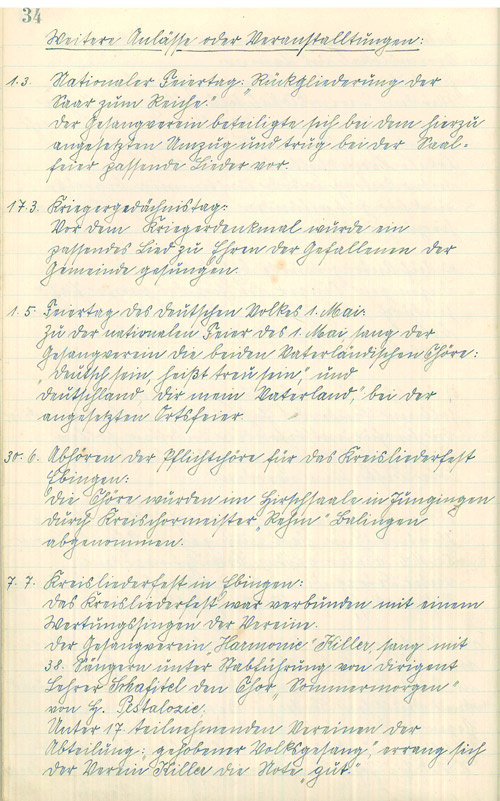 34
Weitere Anlässe oder Veranstalltungen:
1.3. Nationaler Feiertag: "Rückgliederung der
Saar zum Reiche."
Der Gesangverein beteiligte sich bei dem hierzu
angesetzten Umzug und trug bei der Saal-
feier passende Lieder vor.
17.3. Kriegergedächnistag:
Vor dem Kriegerdenkmal wurde ein
passendes Lied zu Ehren der Gefallenen der
Gemeinde gesungen.
1.5. Feiertag des deutschen Volkes 1. Mai:
Zu der nationalen Feier des 1. Mai sang der
Gesangverein die beiden Vaterländischen Chöre:
"Deutsch sein, heißt treu sein," und
"Deutschland, dir mein Vaterland," bei der
angesetzten Ortsfeier.
30.6. Abhören der Pflichtchöre für das Kreisliederfest
Ebingen:
Die Chöre wurden im Hirschsaale in Jungingen
durch Kreischormeister "Rehm" Balingen
abgenommen.
7.7. Kreisliederfest in Ebingen:
Das Kreisliederfest war verbunden mit einem
Wertungssingen der Vereine.
Der Gesangverein "Harmonie" Killer, sang mit
38. Sängern unter Stabführung von Dirigent
Lehrer den Chor "Sommermorgen"
von H. Pestalozie.
Unter 17 teilnehmenden Vereinen der
Abteilung: "gehobener Volksgesang", errang sich
der Verein Killer die Note "gut."